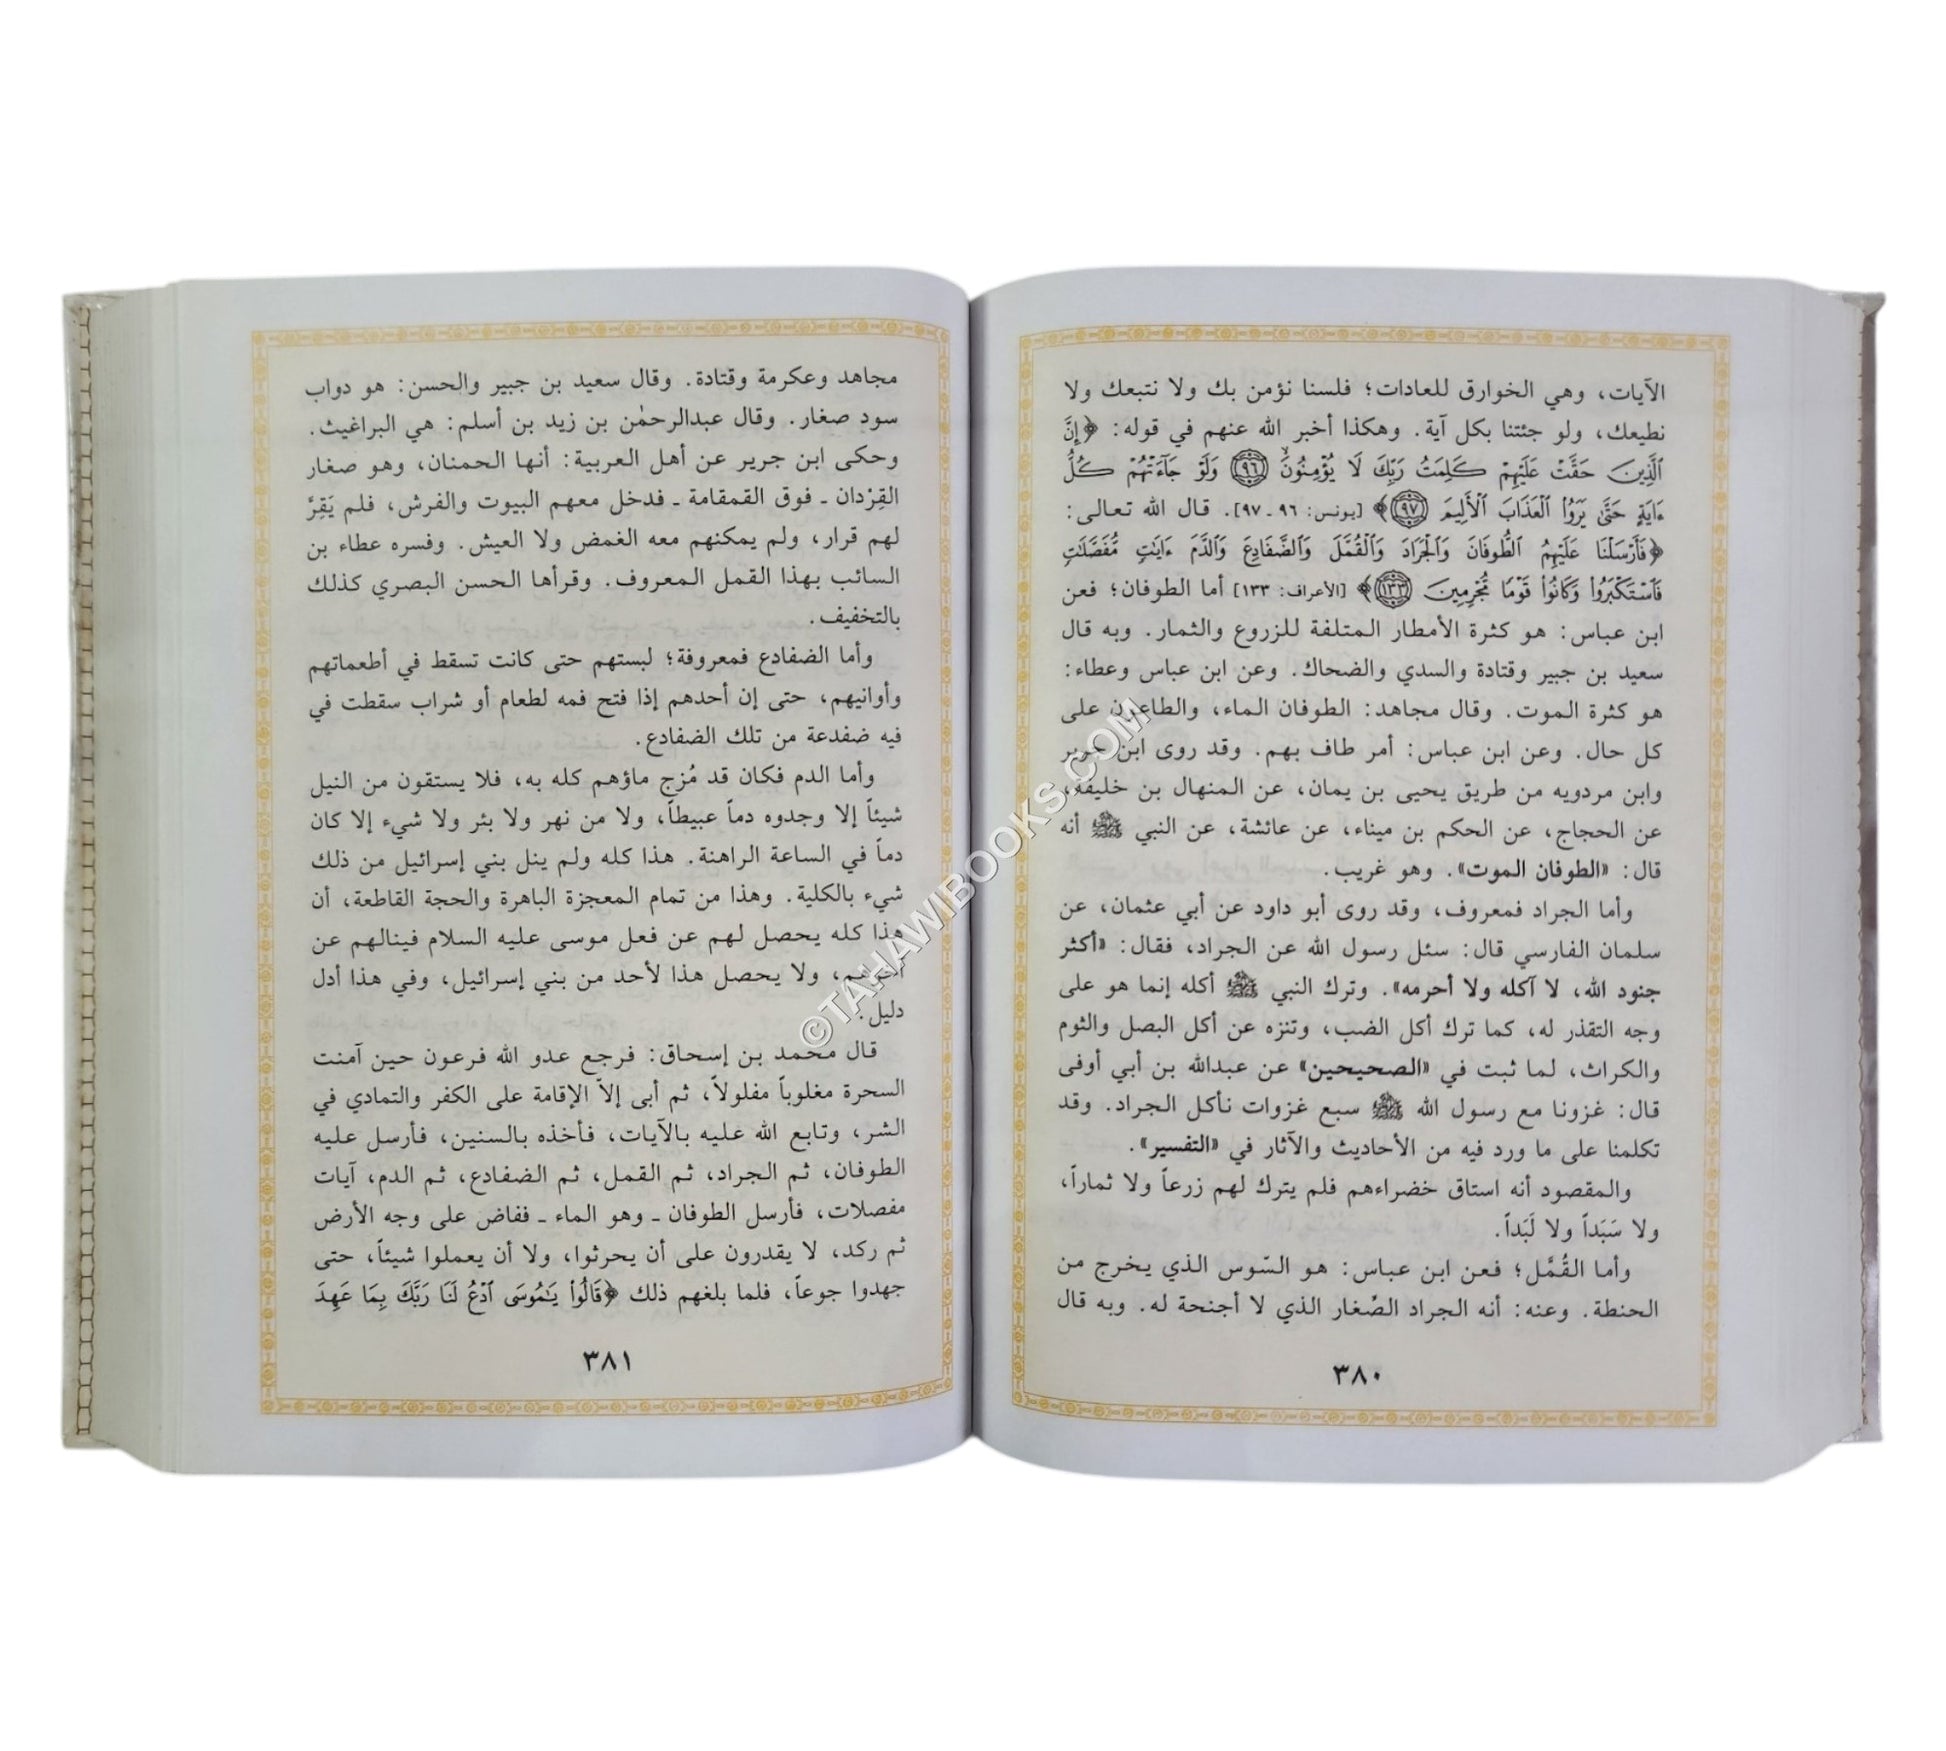 الآيات، وهي الخوارق للعادات؛ فلسنا نؤمن بك ولا نتبعك ولا
نطيعك، ولو جئتنا بكل آية. وهكذا أخبر الله عنهم في قوله: ﴿إِنَّ
ٱلَّذِينَ حَقَّتْ عَلَيْهِمْ كَلِمَتُ رَبِّكَ لَا يُؤْمِنُونَ ۝٩٦ وَلَوْ جَآءَتْهُمْ كُلُّ
ءَايَةٍ حَتَّىٰ يَرَوُا۟ ٱلْعَذَابَ ٱلْأَلِيمَ ۝٩٧﴾ [يونس: ٩٦ ـ ٩٧]. قال الله تعالى:
﴿فَأَرْسَلْنَا عَلَيْهِمُ ٱلطُّوفَانَ وَٱلْجَرَادَ وَٱلْقُمَّلَ وَٱلضَّفَادِعَ وَٱلدَّمَ ءَايَٰتٍ مُّفَصَّلَٰتٍ
فَٱسْتَكْبَرُوا۟ وَكَانُوا۟ قَوْمًا مُّجْرِمِينَ ۝١٣٣﴾ [الأعراف: ١٣٣] أما الطوفان؛ فعن
ابن عباس: هو كثرة الأمطار المتلفة للزروع والثمار. وبه قال
سعيد بن جبير وقتادة والسدي والضحاك. وعن ابن عباس وعطاء:
هو كثرة الموت. وقال مجاهد: الطوفان الماء، والطاعون على
كل حال. وعن ابن عباس: أمر طاف بهم. وقد روى ابن جرير
وابن مردويه من طريق يحيى بن يمان، عن المنهال بن خليفة،
عن الحجاج، عن الحكم بن ميناء، عن عائشة، عن النبي ﷺ أنه
قال: «الطوفان الموت». وهو غريب.
وأما الجراد فمعروف، وقد روى أبو داود عن أبي عثمان، عن
سلمان الفارسي قال: سئل رسول الله عن الجراد، فقال: «أكثر
جنود الله، لا آكله ولا أحرمه». وترك النبي ﷺ أكله إنما هو على
وجه التقذر له، كما ترك أكل الضب، وتنزه عن أكل البصل والثوم
والكراث، لما ثبت في «الصحيحين» عن عبدالله بن أبي أوفى
قال: غزونا مع رسول الله ﷺ سبع غزوات نأكل الجراد. وقد
تكلمنا على ما ورد فيه من الأحاديث والآثار في «التفسير».
والمقصود أنه استاق خضراءهم فلم يترك لهم زرعاً ولا ثماراً،
ولا سَبَداً ولا لَبَداً.
وأما القُمَّل؛ فعن ابن عباس: هو السّوس الذي يخرج من
الحنطة. وعنه: أنه الجراد الصِّغار الذي لا أجنحة له. وبه قال
٣٨٠
مجاهد وعكرمة وقتادة. وقال سعيد بن جبير والحسن: هو دواب
سود صغار. وقال عبدالرحمٰن بن زيد بن أسلم: هي البراغيث.
وحكى ابن جرير عن أهل العربية: أنها الحمنان، وهو صغار
القِرْدان ـ فوق القمقامة ـ فدخل معهم البيوت والفرش، فلم يَقِرَّ
لهم قرار، ولم يمكنهم معه الغمض ولا العيش. وفسره عطاء بن
السائب بهذا القمل المعروف. وقرأها الحسن البصري كذلك
بالتخفيف.
وأما الضفادع فمعروفة؛ لبستهم حتى كانت تسقط في أطعماتهم
وأوانيهم، حتى إن أحدهم إذا فتح فمه لطعام أو شراب سقطت في
فيه ضفدعة من تلك الضفادع.
وأما الدم فكان قد مُزج ماؤهم كله به، فلا يستقون من النيل
شيئاً إلا وجدوه دماً عبيطاً، ولا من نهر ولا بئر ولا شيء إلا كان
دماً في الساعة الراهنة. هذا كله ولم ينل بني إسرائيل من ذلك
شيء بالكلية. وهذا من تمام المعجزة الباهرة والحجة القاطعة، أن
هذا كله يحصل لهم عن فعل موسى عليه السلام فينالهم عن
آخرهم، ولا يحصل هذا لأحد من بني إسرائيل، وفي هذا أدل
دليل.
قال محمد بن إسحاق: فرجع عدو الله فرعون حين آمنت
السحرة مغلوباً مفلولاً، ثم أبى إلاّ الإقامة على الكفر والتمادي في
الشر، وتابع الله عليه بالآيات، فأخذه بالسنين، فأرسل عليه
الطوفان، ثم الجراد، ثم القمل، ثم الضفادع، ثم الدم، آيات
مفصلات، فأرسل الطوفان ـ وهو الماء ـ ففاض على وجه الأرض
ثم ركد، لا يقدرون على أن يحرثوا، ولا أن يعملوا شيئاً، حتى
جهدوا جوعاً، فلما بلغهم ذلك ﴿قَالُوا۟ يَٰمُوسَى ٱدْعُ لَنَا رَبَّكَ بِمَا عَهِدَ
٣٨١
©TAHAWIBOOKS.COM